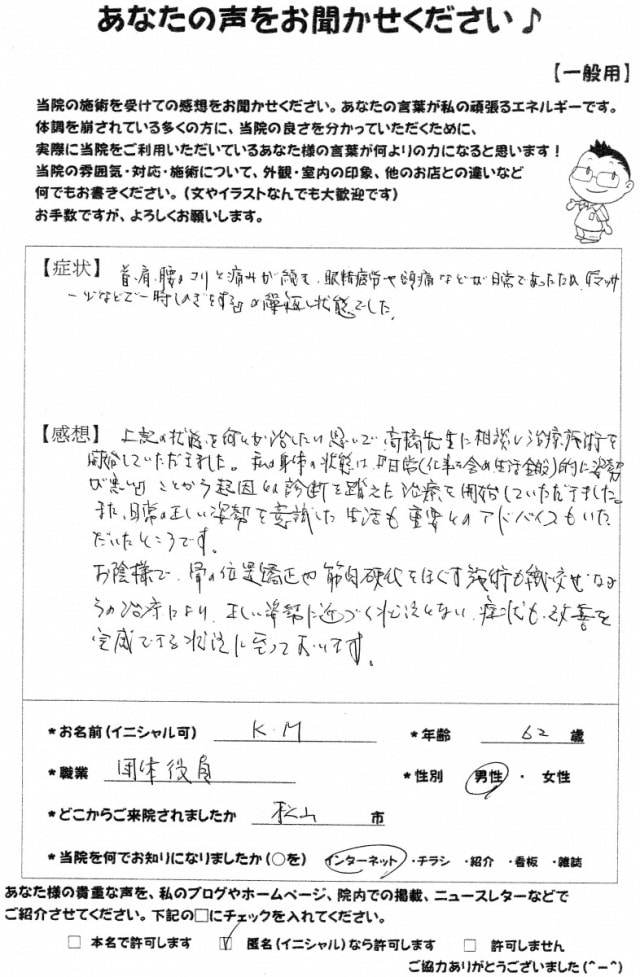 あなたの声をお聞かせください♪
【一般用】
当院の施術を受けての感想をお聞かせください。あなたの言葉が私の頑張るエネルギーです。
体調を崩されている多くの方に、当院の良さを分かっていただくために、
実際に当院をご利用いただいているあなた様の言葉が何よりの力になると思います！
当院の雰囲気・対応・施術について、外観・室内の印象、他のお店との違いなど
何でもお書きください。（文やイラストなんでも大歓迎です）
お手数ですが、よろしくお願いします。
【症状】 首、肩、腰のコリと痛みが 眼精疲労や頭痛などが日常であったため、『マッサ
ージなどで一時しのぎをする』の 状態でした。
【感想】 上記の状態を何とか治したい思いで高橋先生に相談し治療施術を
開始していただきました。私の身体の状態は、『日常(仕事を含め生活全般)的に姿勢
が悪い』ことから起因との診断を踏えた治療を開始していただきました。
また、日常の正しい姿勢を意識した生活も重要とのアドバイスもいた
だいたところです。
お陰様で、骨の位置矯正や筋肉硬化をほぐす施術も織り交ぜなが
らの治療により、正しい姿勢に近づく状況となり、症状も改善を
完成できる状況に至っております。
*お名前(イニシャル可) K・M *年齢 62 歳
*職業 団体役員 *性別 男性 ・ 女性
*どこからご来院されましたか 松山 市
*当院を何でお知りになりましたか(○を) インターネット ・チラシ ・紹介 ・看板 ・雑誌
あなた様の貴重な声を、私のブログやホームページ、院内での掲載、ニュースレターなどで
ご紹介させてください。下記の□にチェックを入れてください。
□ 本名で許可します ☑ 匿名(イニシャル)なら許可します □ 許可しません
ご協力ありがとうございました(^-^)